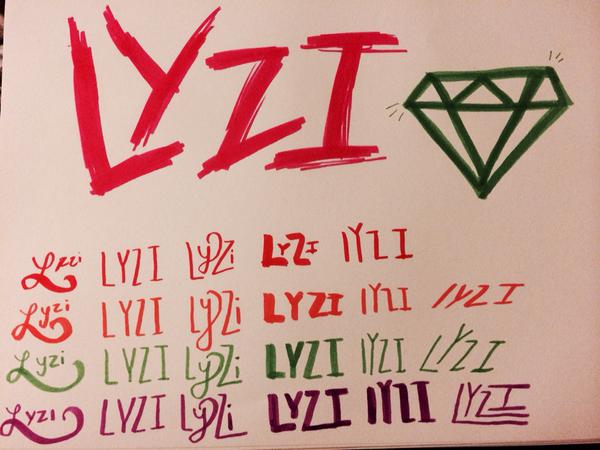 LYZI
Lyzi LYZI LyZi LYZI LYZI
Lyzi LYZI LyZi LYZI LYZI LYZI
Lyzi LYZI LyZi LYZI LYZI LYZI
Lyzi LYZI LyZi LYZI LYZI LYZI